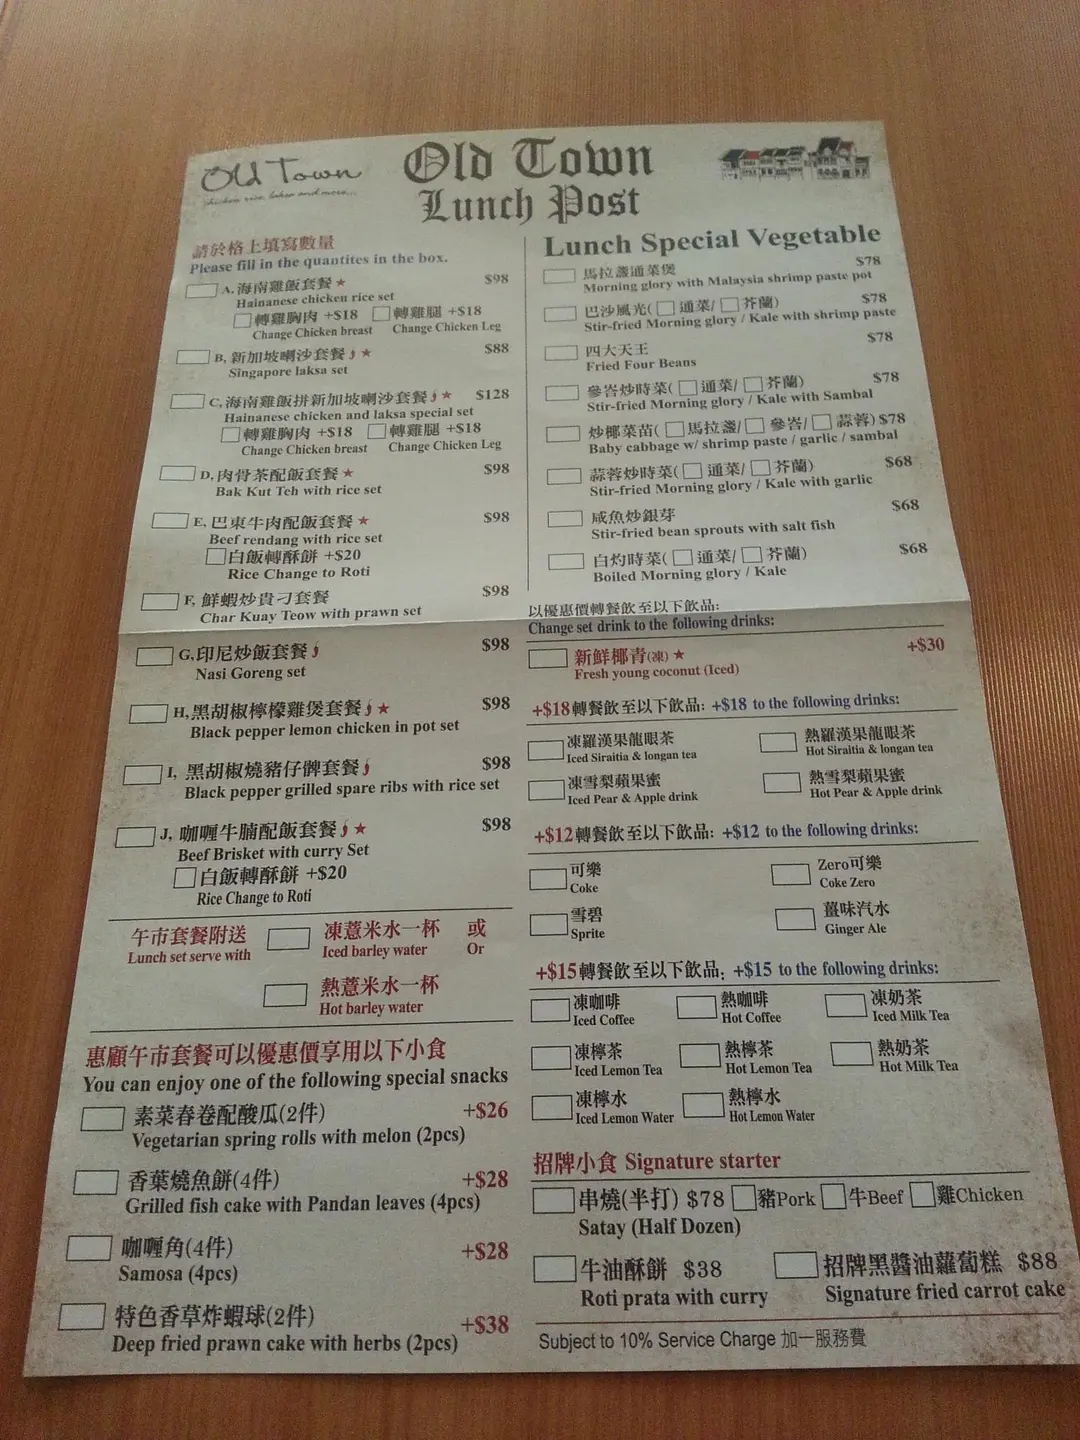 Old Town
chicken rice, laksa and more...
Old Town
Lunch Post
請於格上填寫數量
Please fill in the quantites in the box.
A. 海南雞飯套餐★ $98
Hainanese chicken rice set
轉雞胸肉 +$18 轉雞腿 +$18
Change Chicken breast Change Chicken Leg
B. 新加坡喇沙套餐★ $88
Singapore laksa set
C, 海南雞飯拼新加坡喇沙套餐★ $128
Hainanese chicken and laksa special set
轉雞胸肉 +$18 轉雞腿 +$18
Change Chicken breast Change Chicken Leg
D, 肉骨茶配飯套餐★ $98
Bak Kut Teh with rice set
E, 巴東牛肉配飯套餐★ $98
Beef rendang with rice set
白飯轉酥餅 +$20
Rice Change to Roti
F, 鮮蝦炒貴刁套餐 $98
Char Kuay Teow with prawn set
G, 印尼炒飯套餐 $98
Nasi Goreng set
H, 黑胡椒檸檬雞煲套餐★ $98
Black pepper lemon chicken in pot set
I, 黑胡椒燒豬仔髀套餐 $98
Black pepper grilled spare ribs with rice set
J, 咖喱牛腩配飯套餐★ $98
Beef Brisket with curry Set
白飯轉酥餅 +$20
Rice Change to Roti
午市套餐附送 凍薏米水一杯 或
Lunch set serve with Iced barley water Or
熱薏米水一杯
Hot barley water
惠顧午市套餐可以優惠價享用以下小食
You can enjoy one of the following special snacks
素菜春卷配酸瓜(2件) +$26
Vegetarian spring rolls with melon (2pcs)
香葉燒魚餅(4件) +$28
Grilled fish cake with Pandan leaves (4pcs)
咖喱角(4件) +$28
Samosa (4pcs)
特色香草炸蝦球(2件) +$38
Deep fried prawn cake with herbs (2pcs)
Lunch Special Vegetable
馬拉盞通菜煲 $78
Morning glory with Malaysia shrimp paste pot
巴沙風光( 通菜/ 芥蘭) $78
Stir-fried Morning glory / Kale with shrimp paste
四大天王 $78
Fried Four Beans
參峇炒時菜( 通菜/ 芥蘭) $78
Stir-fried Morning glory / Kale with Sambal
炒椰菜苗( 馬拉盞/ 參峇/ 蒜蓉) $78
Baby cabbage w/ shrimp paste / garlic / sambal
蒜蓉炒時菜( 通菜/ 芥蘭) $68
Stir-fried Morning glory / Kale with garlic
咸魚炒銀芽 $68
Stir-fried bean sprouts with salt fish
白灼時菜( 通菜/ 芥蘭) $68
Boiled Morning glory / Kale
以優惠價轉餐飲至以下飲品:
Change set drink to the following drinks:
新鮮椰青(凍)★ +$30
Fresh young coconut (Iced)
+$18轉餐飲至以下飲品: +$18 to the following drinks:
凍羅漢果龍眼茶 熱羅漢果龍眼茶
Iced Siraitia & longan tea Hot Siraitia & longan tea
凍雪梨蘋果蜜 熱雪梨蘋果蜜
Iced Pear & Apple drink Hot Pear & Apple drink
+$12轉餐飲至以下飲品: +$12 to the following drinks:
可樂 Zero可樂
Coke Coke Zero
雪碧 薑味汽水
Sprite Ginger Ale
+$15轉餐飲至以下飲品: +$15 to the following drinks:
凍咖啡 熱咖啡 凍奶茶
Iced Coffee Hot Coffee Iced Milk Tea
凍檸茶 熱檸茶 熱奶茶
Iced Lemon Tea Hot Lemon Tea Hot Milk Tea
凍檸水 熱檸水
Iced Lemon Water Hot Lemon Water
招牌小食 Signature starter
串燒(半打) $78 豬Pork 牛Beef 雞Chicken
Satay (Half Dozen)
牛油酥餅 $38 招牌黑醬油蘿蔔糕 $88
Roti prata with curry Signature fried carrot cake
Subject to 10% Service Charge 加一服務費